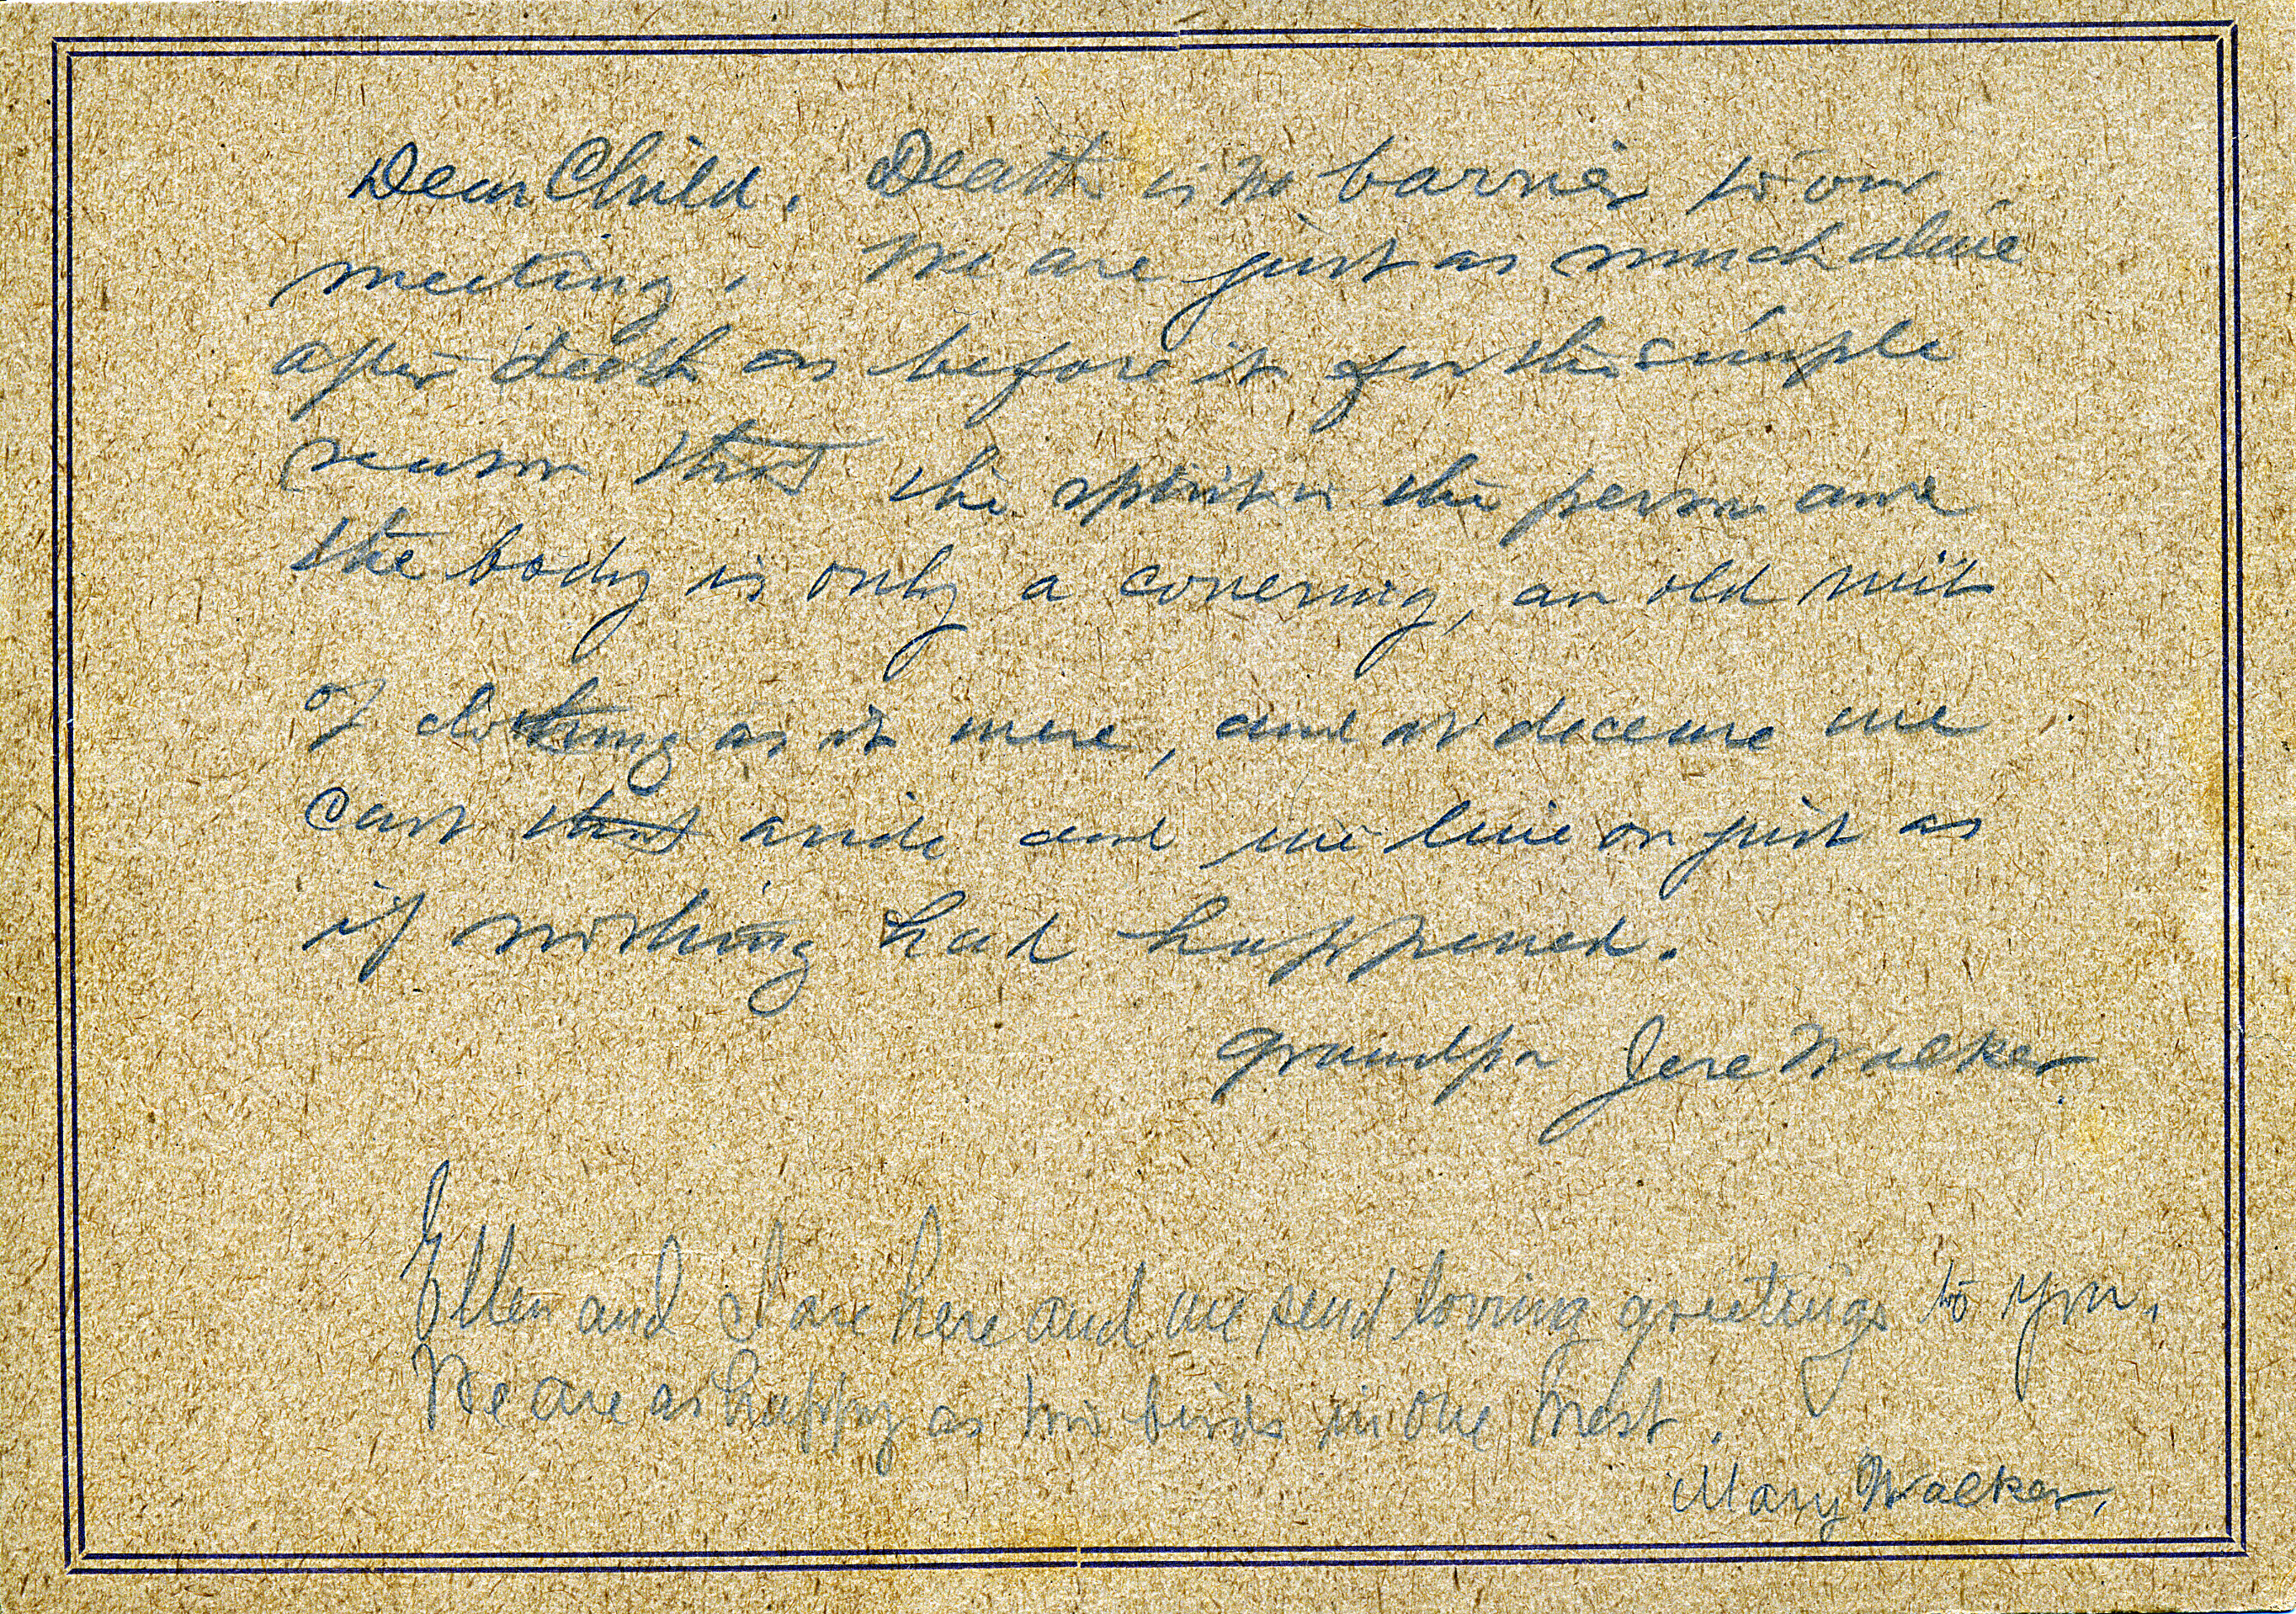 Dear Child. Death is no barrier to our
meeting. We are just as much alive
after death as before it for the simple
reason that the spirit is the person and
the body is only a covering, an old suit
of clothing as it were, and at decease we
cast that aside and we live on just as
if nothing had happened.
Grandpa Jere Walker
Ellen and I are here and we send loving greetings to you.
We are as happy as two birds in one nest.
Mary Walker.